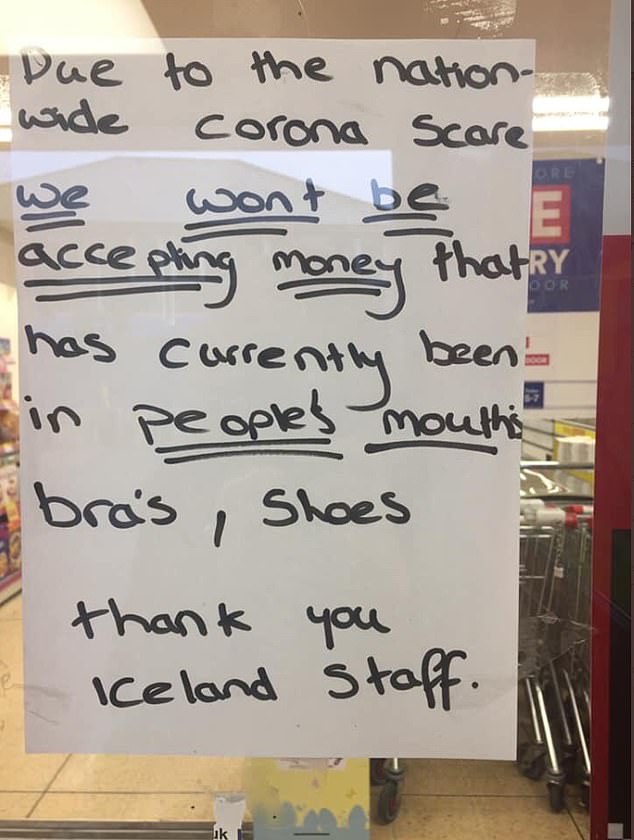 Due to the nation-
wide corona scare
we wont be
accepting money that
has currently been
in people's mouth's
bra's , shoes
thank you
Iceland Staff.
ORE
E
RY
OOR
DOOR
5-7
uk